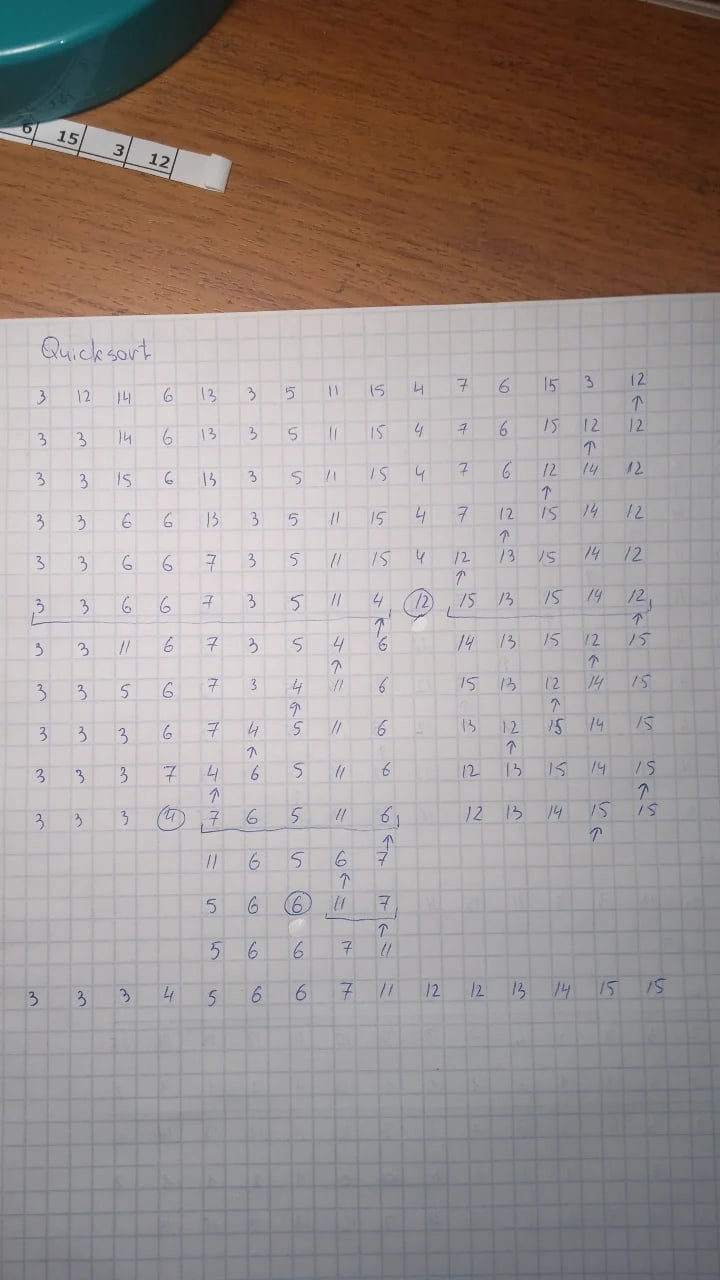 6 15 3 12
Quicksort
3 12 14 6 13 3 5 11 15 4 7 6 15 3 12
↑
3 3 14 6 13 3 5 11 15 4 7 6 15 12 12
↑
3 3 15 6 13 3 5 11 15 4 7 6 12 14 12
↑
3 3 6 6 13 3 5 11 15 4 7 12 15 14 12
↑
3 3 6 6 7 3 5 11 15 4 12 13 15 14 12
↑
3 3 6 6 7 3 5 11 4 12 15 13 15 14 12
↑ ↑
3 3 11 6 7 3 5 4 6 14 13 15 12 15
↑ ↑
3 3 5 6 7 3 4 11 6 15 13 12 14 15
↑ ↑
3 3 3 6 7 4 5 11 6 13 12 15 14 15
↑ ↑
3 3 3 7 4 6 5 11 6 12 13 15 14 15
↑ ↑
3 3 3 4 7 6 5 11 6 12 13 14 15 15
↑ ↑
11 6 5 6 7
↑
5 6 6 11 7
↑
5 6 6 7 11
3 3 3 4 5 6 6 7 11 12 12 13 14 15 15